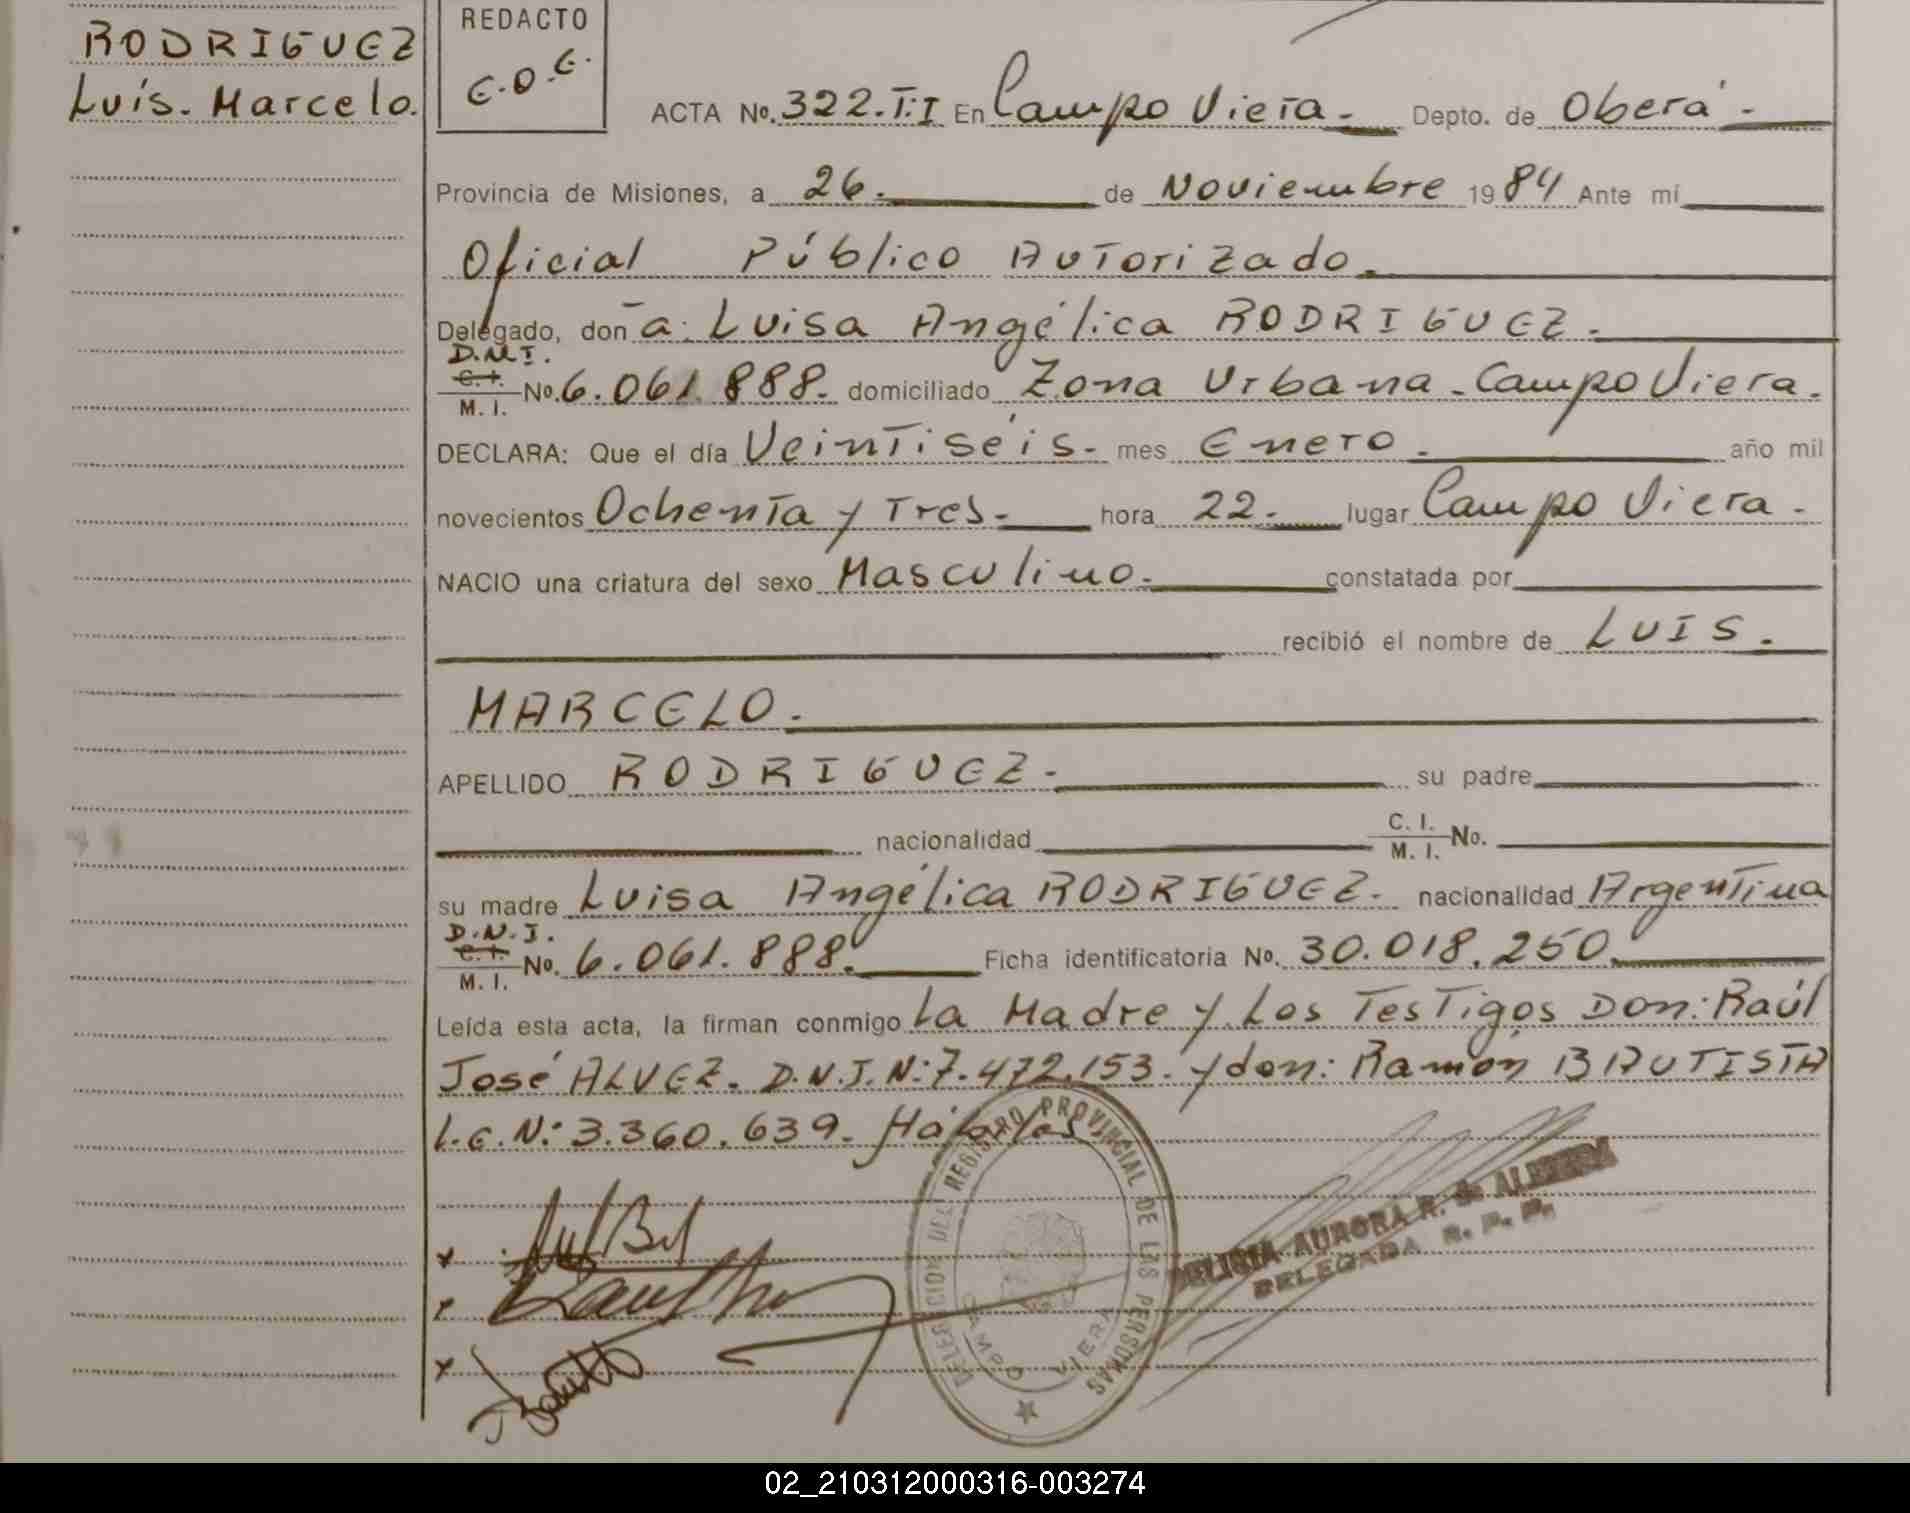 RODRIGUEZ
Luís. Marcelo.
REDACTO
C.O.C.
ACTA No. 322.T:I En Campo Viera.- Depto. de Oberá.-
Provincia de Misiones, a 26. de Noviembre 1984 Ante mí
Oficial Público Autorizado.
Delegado, don a: Luisa Angélica RODRIGUEZ.
D.N.I.
C. I.
M. I. No. 6.061.888. domiciliado Zona Urbana.- Campo Viera.
DECLARA: Que el día Veintiséis.- mes Enero. año mil
novecientos Ochenta y Tres.- hora 22. lugar Campo Viera.
NACIO una criatura del sexo Masculino.- constatada por
recibió el nombre de LUIS.
MARCELO.
APELLIDO RODRIGUEZ.- su padre
nacionalidad C. I.
M. I. No.
su madre Luisa Angélica RODRIGUEZ. nacionalidad Argentina
D.N.I.
C. I.
M. I. No. 6.061.888. Ficha identificatoria No. 30.018.250.
Leída esta acta, la firman conmigo La Madre y Los Testigos Don: Raúl
José ALVEZ. D.N.I.N: 7.472.153. y don: Ramón BAUTISTA
L.E.N: 3.360.639. Hábiles
DELEGACION DEL REGISTRO PROVINCIAL DE LAS PERSONAS
CAMPO VIERA
DELICIA AURORA R. de
DELEGADA R. P. P.
02_210312000316-003274